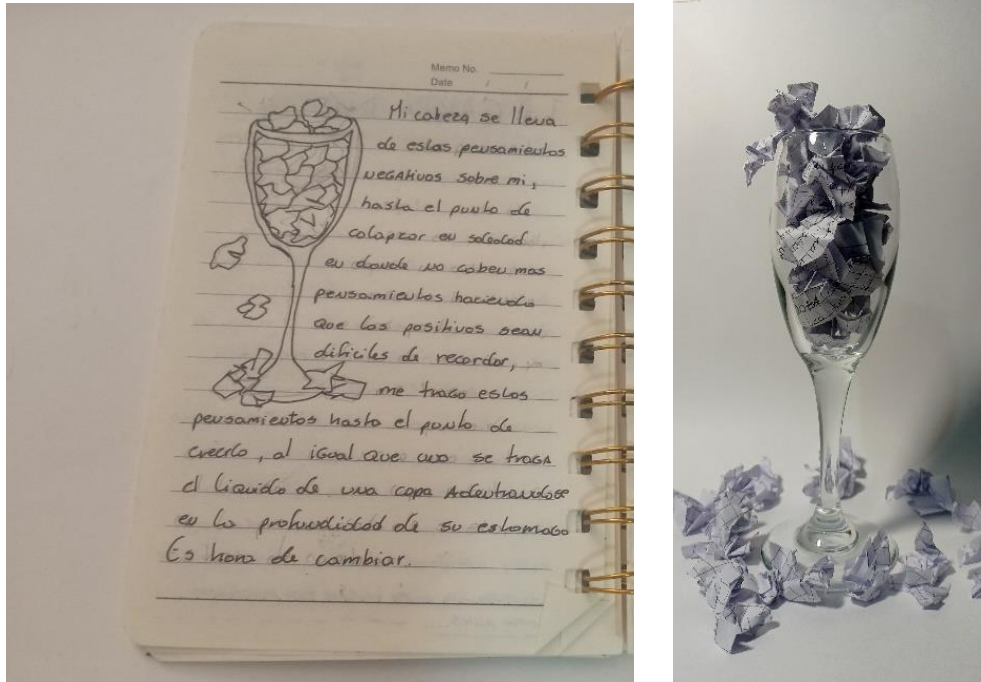 Memo No.
Date / /
Mi cabeza se lleva
de estos pensamientos
NEGAtivos sobre mi,
hasta el punto de
colapzar en soledad
en donde no caben mas
pensamientos haciendo
que los positivos sean
dificiles de recordar,
me trago estos
pensamientos hasta el punto de
creerlo, al igual que uno se traga
el liquido de una copa Adentrandose
en la profundidad de su estomago
Es hora de cambiar.